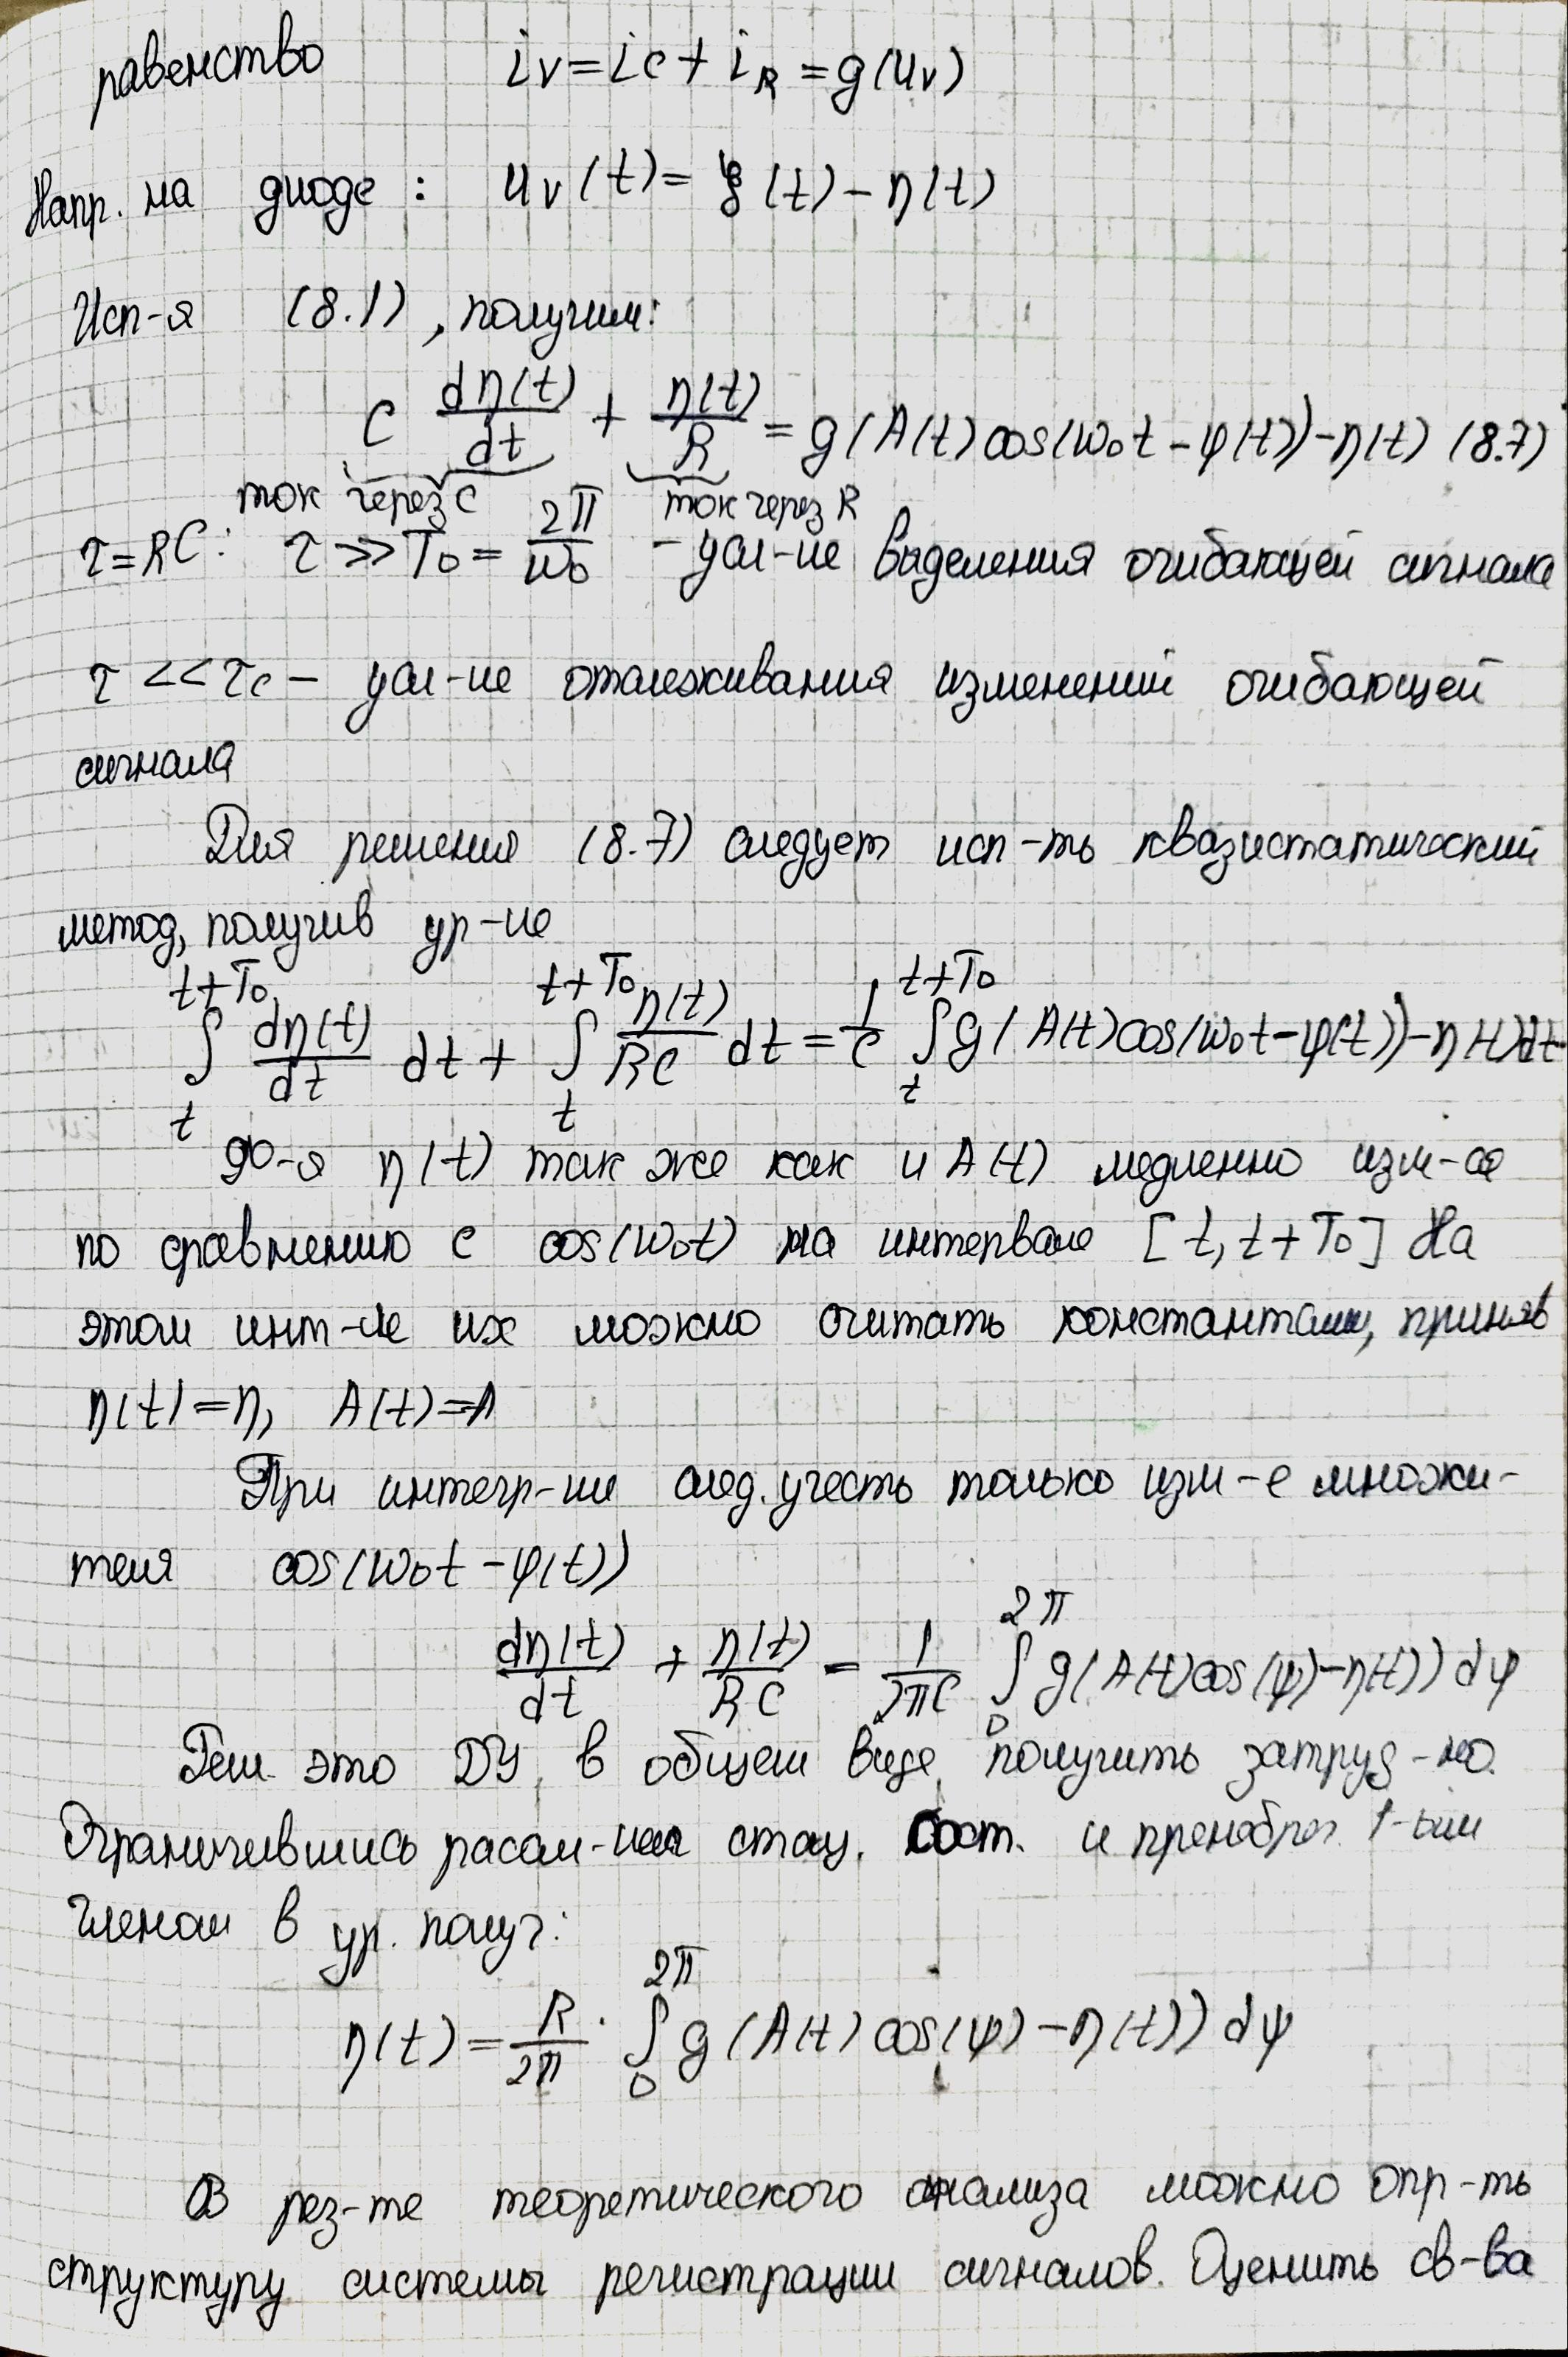 равенство i_V = i_C + i_R = g(u_V)
Напр. на диоде: u_V(t) = ξ(t) − η(t)
Исп-я (8.1), получим:
C dη(t)/dt + η(t)/R = g(A(t) cos(ω₀t − φ(t)) − η(t) (8.7)
ток через C ток через R
τ = RC: τ >> T₀ = 2π/ω₀ – усл-ие выделения огибающей сигнала
τ << τc – усл-ие отслеживания изменений огибающей
сигнала
Для решения (8.7) следует исп-ть квазистатический
метод, получив ур-ие
∫_t^{t+T₀} dη(t)/dt dt + ∫_t^{t+T₀} η(t)/RC dt = 1/C ∫_t^{t+T₀} g(A(t) cos(ω₀t − φ(t)) − η(t))dt
ф-я η(t) так же как и A(t) медленно изм-ся
по сравнению с cos(ω₀t) на интервале [t, t+T₀] На
этом инт-ле их можно считать константами, приняв
η(t) = η, A(t) = A
При интегр-ии след. учесть только изм-е множи-
теля cos(ω₀t − φ(t))
dη(t)/dt + η(t)/RC = 1/2πC ∫_0^{2π} g(A(t) cos(ψ) − η(t)) dψ
Реш. это ДУ в общем виде получить затруд-но.
Ограничившись рассм-ием стац. сост. и пренебрег. 1-ым
членом в ур. получ:
η(t) = R/2π · ∫_0^{2π} g(A(t) cos(ψ) − η(t)) dψ
В рез-те теоретического анализа можно опр-ть
структуру системы регистрации сигналов. Оценить св-ва